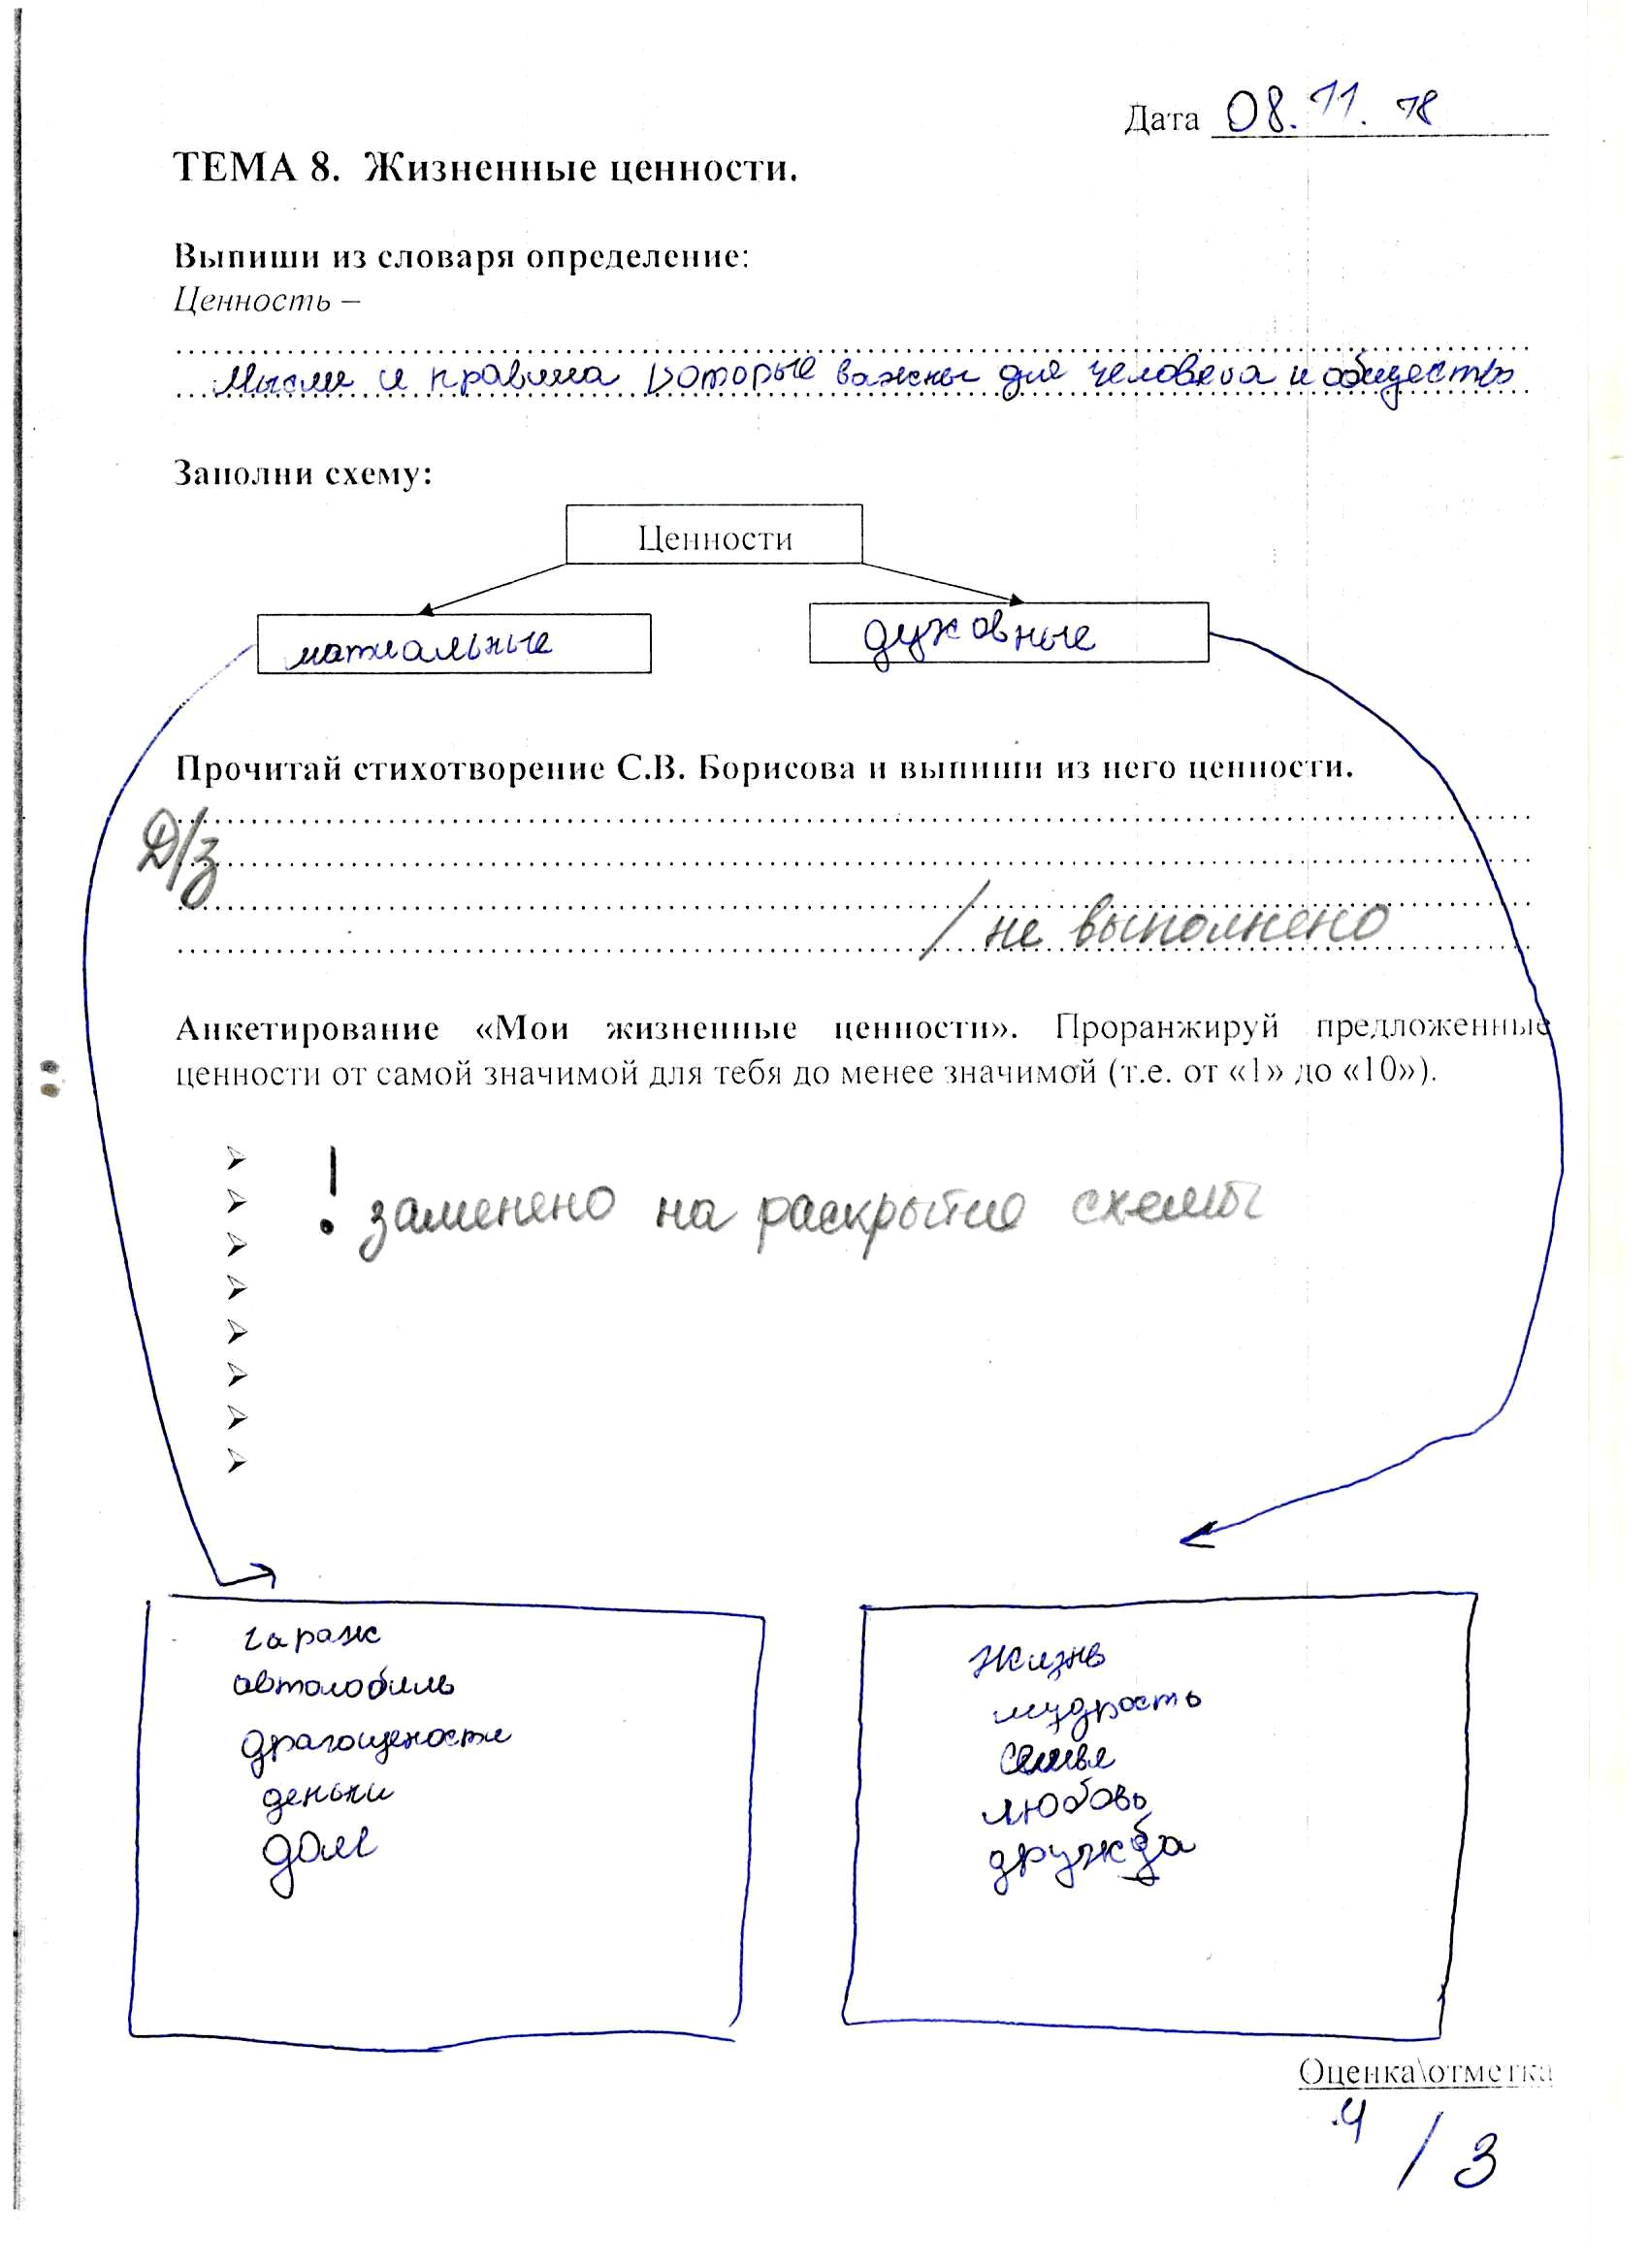 Дата 08.11.18
ТЕМА 8. Жизненные ценности.
Выпиши из словаря определение:
Ценность –
Мысли и правила которые важны для человека и общества
Заполни схему:
Ценности
матиальные
духовные
Прочитай стихотворение С.В. Борисова и выпиши из него ценности.
Д/з
/ не выполнено
Анкетирование «Мои жизненные ценности». Проранжируй предложенные
ценности от самой значимой для тебя до менее значимой (т.е. от «1» до «10»).
! заменено на раскрытие схемы
гараж
автомобиль
драгощености
деньги
дом
жизнь
мудрость
семья
любовь
дружба
Оценка\отметка
4 / 3